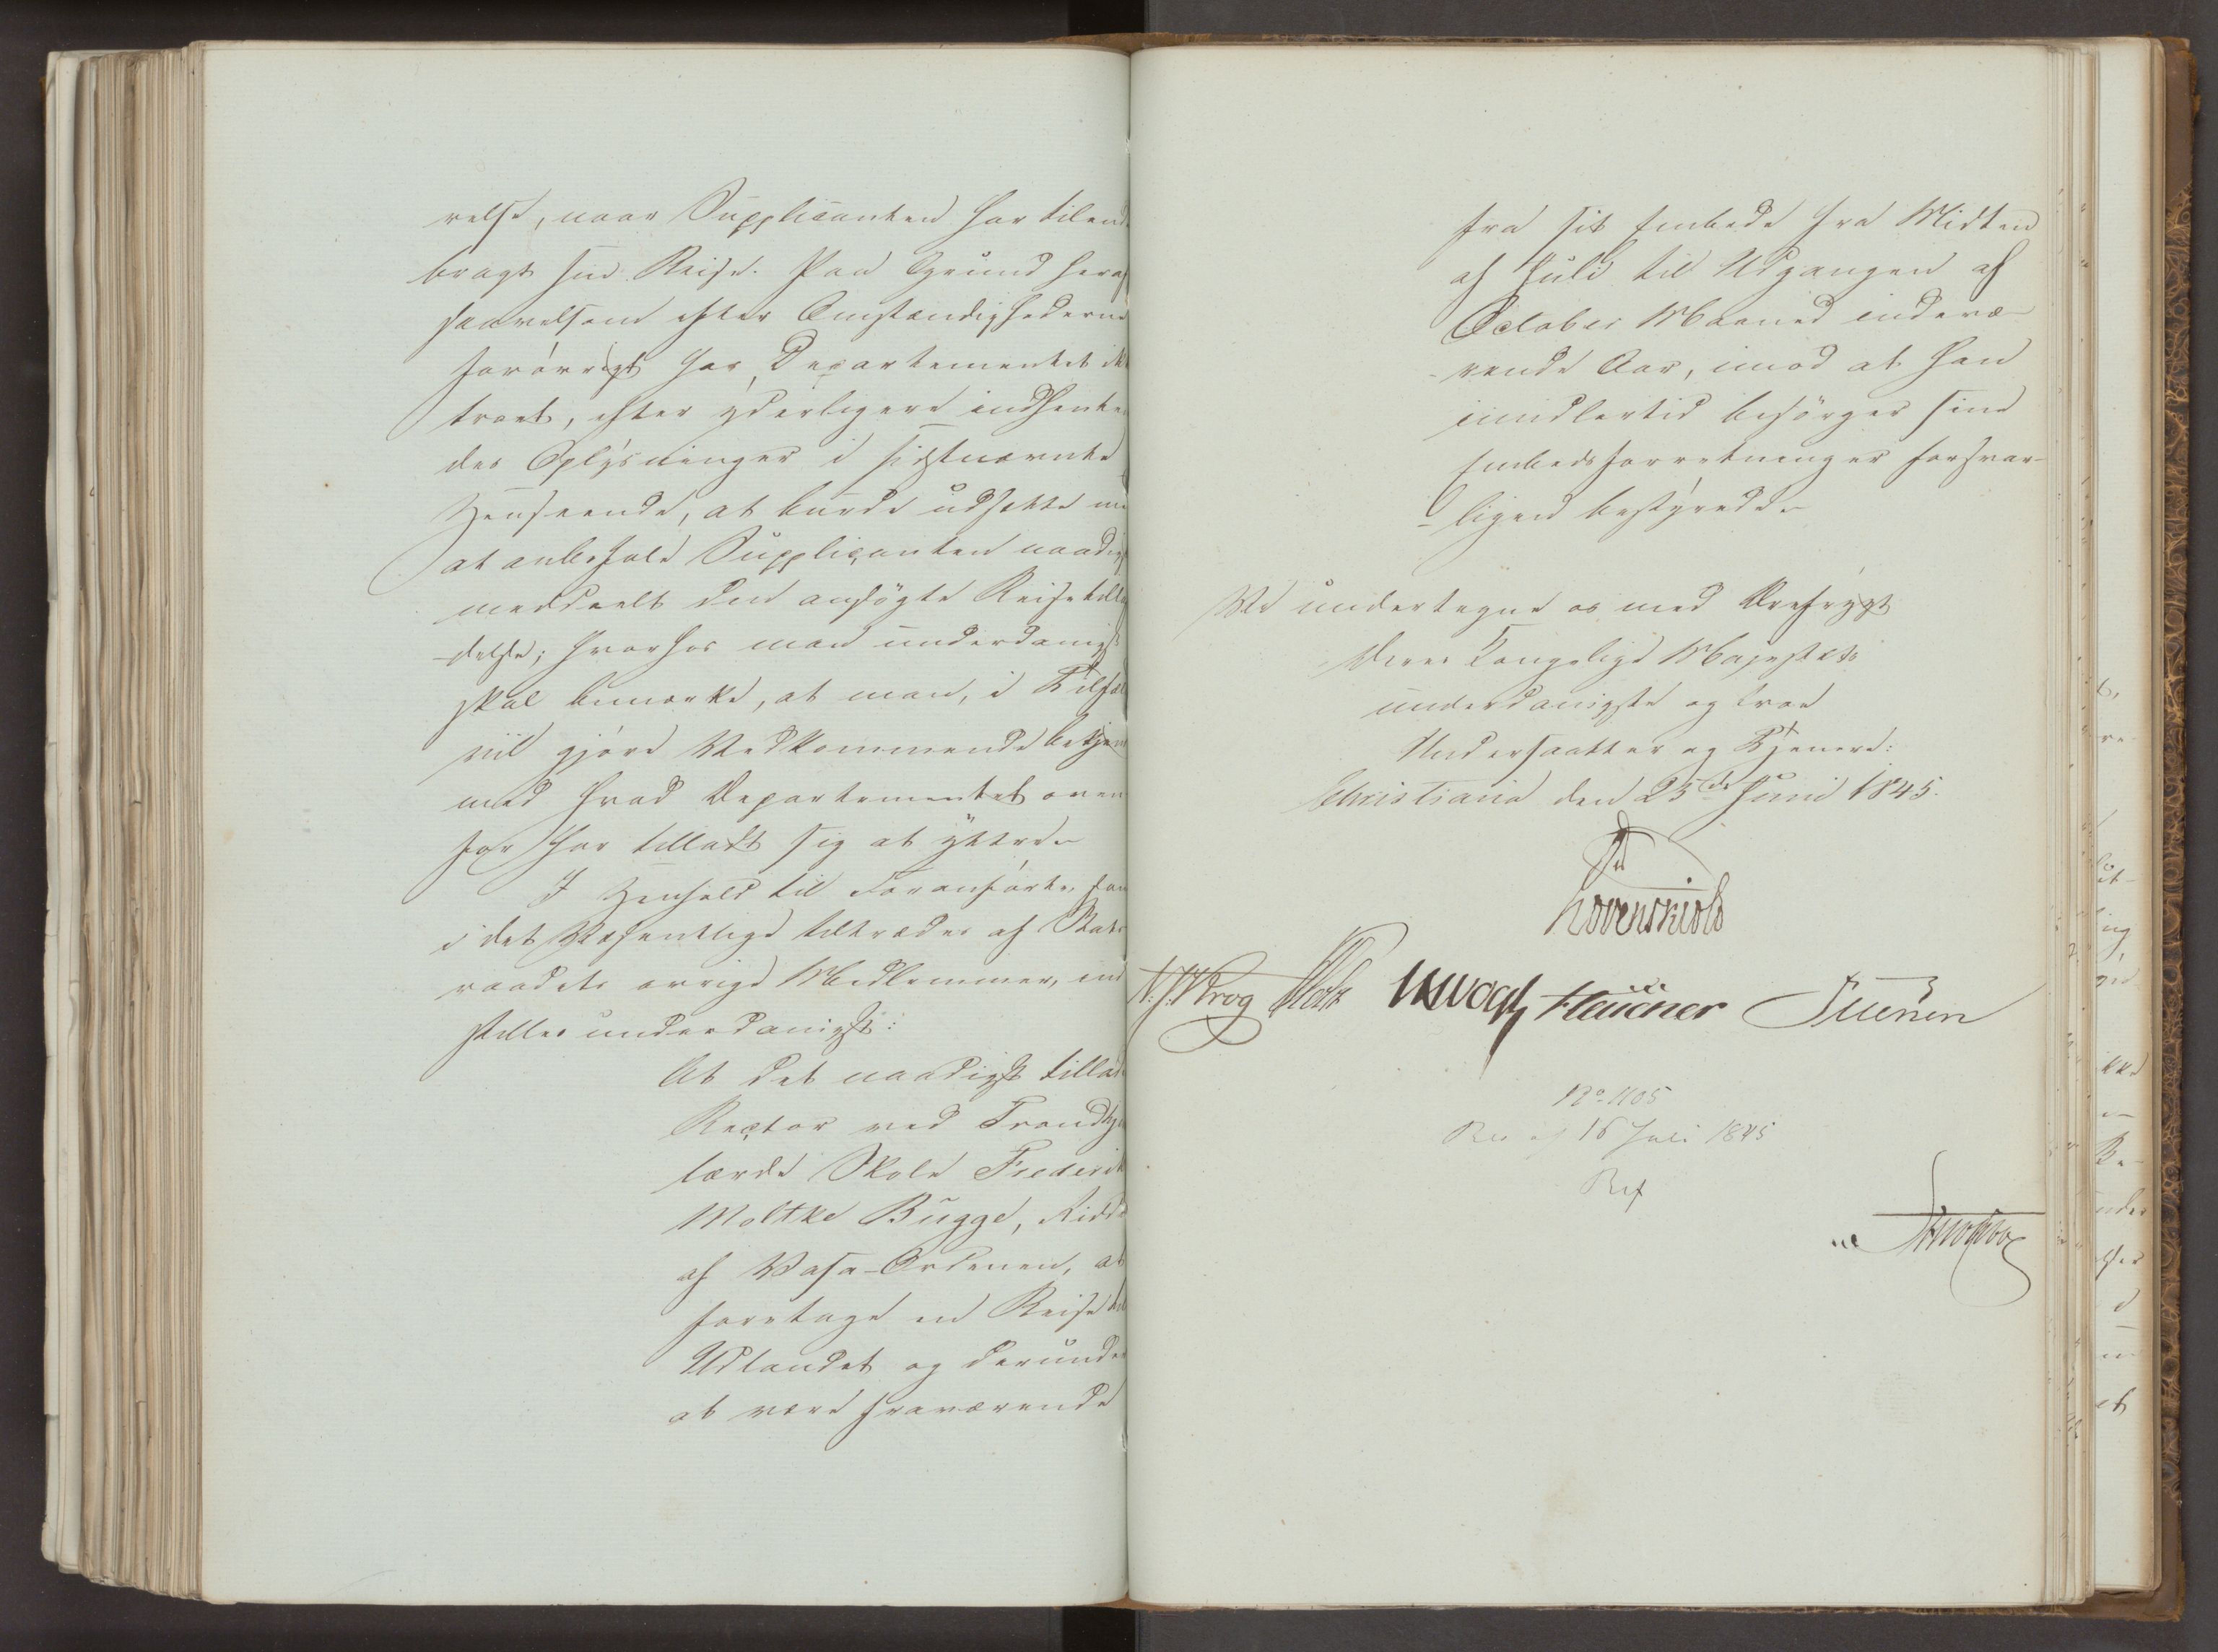 relse, naar Supplicanten har tilende
bragt sin Reise. Paa Grund heraf
saavelsom efter Omstændighederne
forøvrigt har Departementet ikke
troet, efter yderligere indhente
des Oplysninger i sidstnævnte
Henseende, at burde udsætte med
at anbefale Supplicanten naadigst
meddeelt den ansøgte Reisetilla
-delse; hvorhos man underdanigst
skal bemærke, at man, i Tilfælde
vil gjøre Vedkommende bekjendt
med hvad Departementet oven
for har tilladt sig at yttre.
I Henhold til Foranførte, som
i det Væsentlige tiltrædes af Stats
raadets øvrige Medlemmer, ind
stilles underdanigst:
At det naadigst tillades
Rector ved Trondhjems
lærde Skole Frederik
Moltke Bugge, Ridder
af Vasa-Ordenen, at
foretage en Reise til
Udlandet og derunder
at være fraværende
fra sit Embede fra Midten
af Juli til Udgangen af
October Maaned indevæ-
-rende Aar, imod at han
imidlertid besørger sine
Embedsforretninger forsvar-
-ligen bestyrede.
Vi undertegne os med Ærefrygt
Deres Kongelige Majestæts
underdanigste og troe
Undersaatter og Tjenere:
Christiania den 25de Juni 1845.
Løvenskiold
Krog Holst Vogt Fleischer
No 1105
Res af 16 Juli 1845